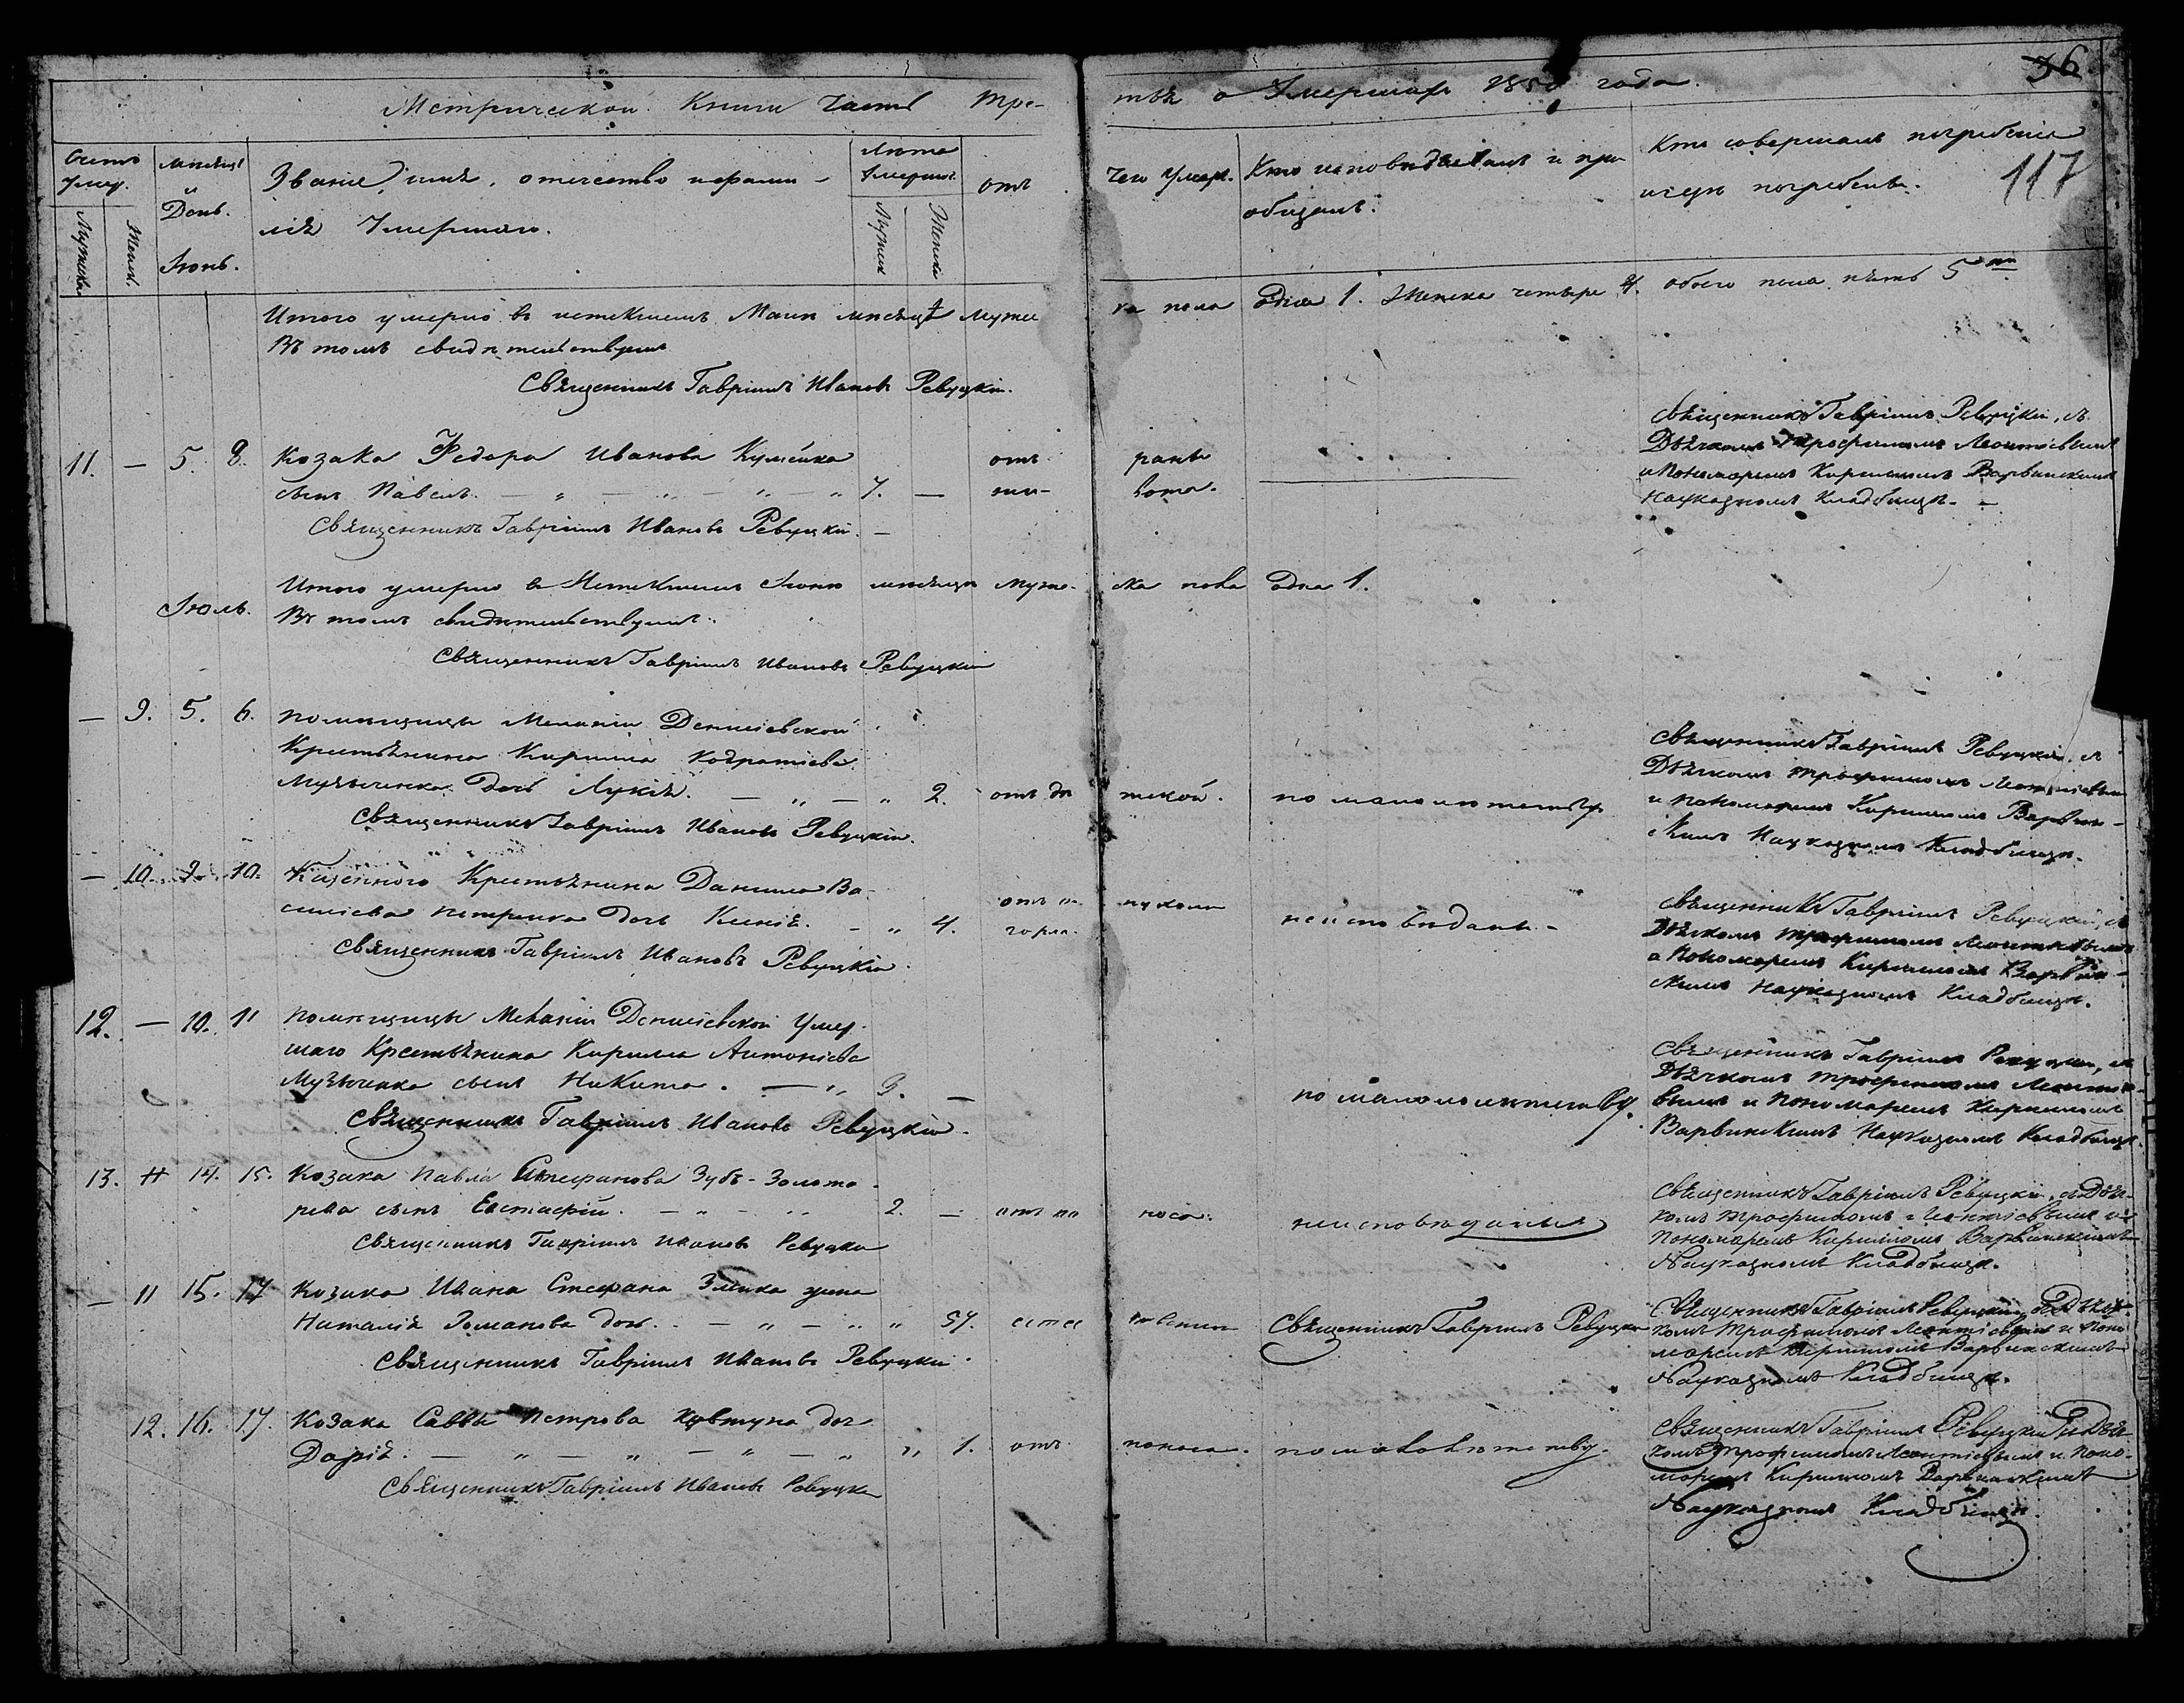 36
117
Метрической Книги Часть Тре-
тья о Умершихъ 185 года.
Счетъ Умер.
Мужеска
Женск.
Мѣсяцъ и День.
Іюнь.
Званіе, имя, отчество и фами-
лія Умершаго.
Лѣта Умершаг.
Мужск
Женска
отъ
чего Умер.
Кто исповѣдывалъ и прі-
общалъ.
Кто совершалъ погребеніе
и гдѣ погребены.
Итого умерло въ истекшемъ Маіи мѣсяцѣ Муже
ка пола одна 1. Женска четыре 4. обоего пола пять 5
Въ томъ свидѣтельствуемъ
Священникъ Гавріилъ Ивановъ Ревуцкій.
11. — 5. 8. Козака Федора Иванова Кумейка
сынъ Павелъ. — „ — „ — „ — „ 7. —
отъ
жи-
раны
вота.
Священникъ Гавріилъ Ревуцкій, съ
Дьячкомъ Трофимомъ Леонтіевымъ
и Пономаремъ Кирилломъ Варвинскимъ
На указномъ Кладбищѣ. —
Священникъ Гавріилъ Ивановъ Ревуцкій. —
Итого умерло въ Истекшемъ Іюнѣ мѣсяцѣ муже-
ска пола одна 1.
Іюль.
Въ томъ свидѣтельствуемъ.
Священникъ Гавріилъ Ивановъ Ревуцкій
— 9. 5. 6. Помѣщицы Меланіи Денисіевской
Крестьянина Кирилла Кодратіева
Музыченка дочь Лукія. — „ — „ 2. отъ дѣ
тской. по малолѣтству
Священникъ Гавріилъ Ревуцкій, съ
Дьячкомъ Трофимомъ Леонтіевымъ
и Пономаремъ Кирилломъ Варвин-
скимъ На указномъ Кладбищѣ.
Священникъ Гавріилъ Ивановъ Ревуцкій.
— 10. 9. 10. Казенного Крестьянина Данила Ва-
силіева Петрика дочь Ксенія. — „ 4.
отъ о-
горла.
пухоли
не исповѣдана. -
Священникъ Гавріилъ Ревуцкій, съ
Дьячкомъ Трофимомъ Леонтіевымъ
и Пономаремъ Кирилломъ Варвин-
скимъ На указномъ Кладбищѣ.
Священникъ Гавріилъ Ивановъ Ревуцкій.
12. — 10. 11 Помѣщицы Меланіи Денисіевской Умер-
шаго Крестьянина Кирилла Антоніева
Музыченка сынъ Никита. — „ 9. —
по малолѣтству.
Священникъ Гавріилъ Ревуцкій, съ
Дьячкомъ Трофимомъ Леонтіе-
вымъ и Пономаремъ Кирилломъ
Варвинскимъ На указномъ Кладбищѣ.
Священникъ Гавріилъ Ивановъ Ревуцкій.
13. 14. 15. Козака Павла Стефанова Зубъ-Золото-
рева сынъ Евстафій. — „ — „ 2. — отъ по
носа. не исповѣданъ
Священникъ Гавріилъ Ревуцкій, съ Дьяч-
комъ Трофимомъ Леонтіевымъ и
Пономаремъ Кирилломъ Варвинскимъ
На указномъ Кладбищѣ.
Священникъ Гавріилъ Ивановъ Ревуцкій
— 11 15. 17 Козака Ивана Стефана жена
Наталія Романова доч. . — „ — „ „ 57. есте
ственно Священникъ Гавріилъ Ревуцкій
Священникъ Гавріилъ Ревуцкій, съ Дьяч-
комъ Трофимомъ Леонтіевымъ и Поно-
маремъ Кирилломъ Варвинскимъ
На указномъ Кладбищѣ.
Священникъ Гавріилъ Ивановъ Ревуцкій.
12. 16. 17. Козака Саввы Петрова Ковтуна доч
Дарія. — „ — „ — „ — „ „ 1. отъ
поноса. по малолѣтству.
Священникъ Гавріилъ Ревуцкій съ Дьяч-
комъ Трофимомъ Леонтіевымъ и Поно-
маремъ Кирилломъ Варвинскимъ
На указномъ Кладбищѣ.
Священникъ Гавріилъ Ивановъ Ревуцкій